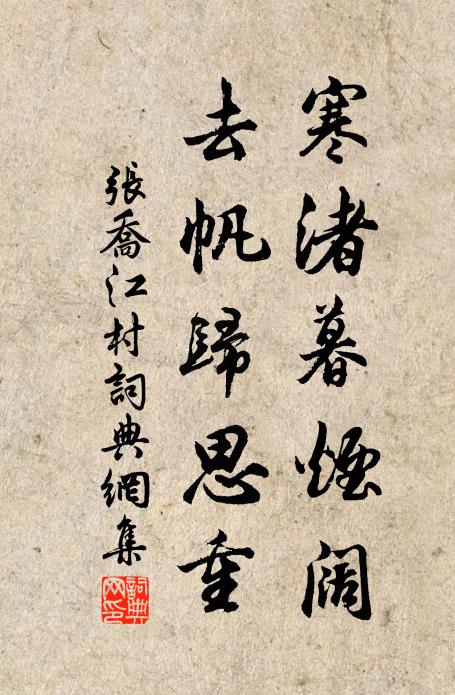 寒渚暮煙闊
去帆歸思重
張喬江村詞典網集
詞典网印